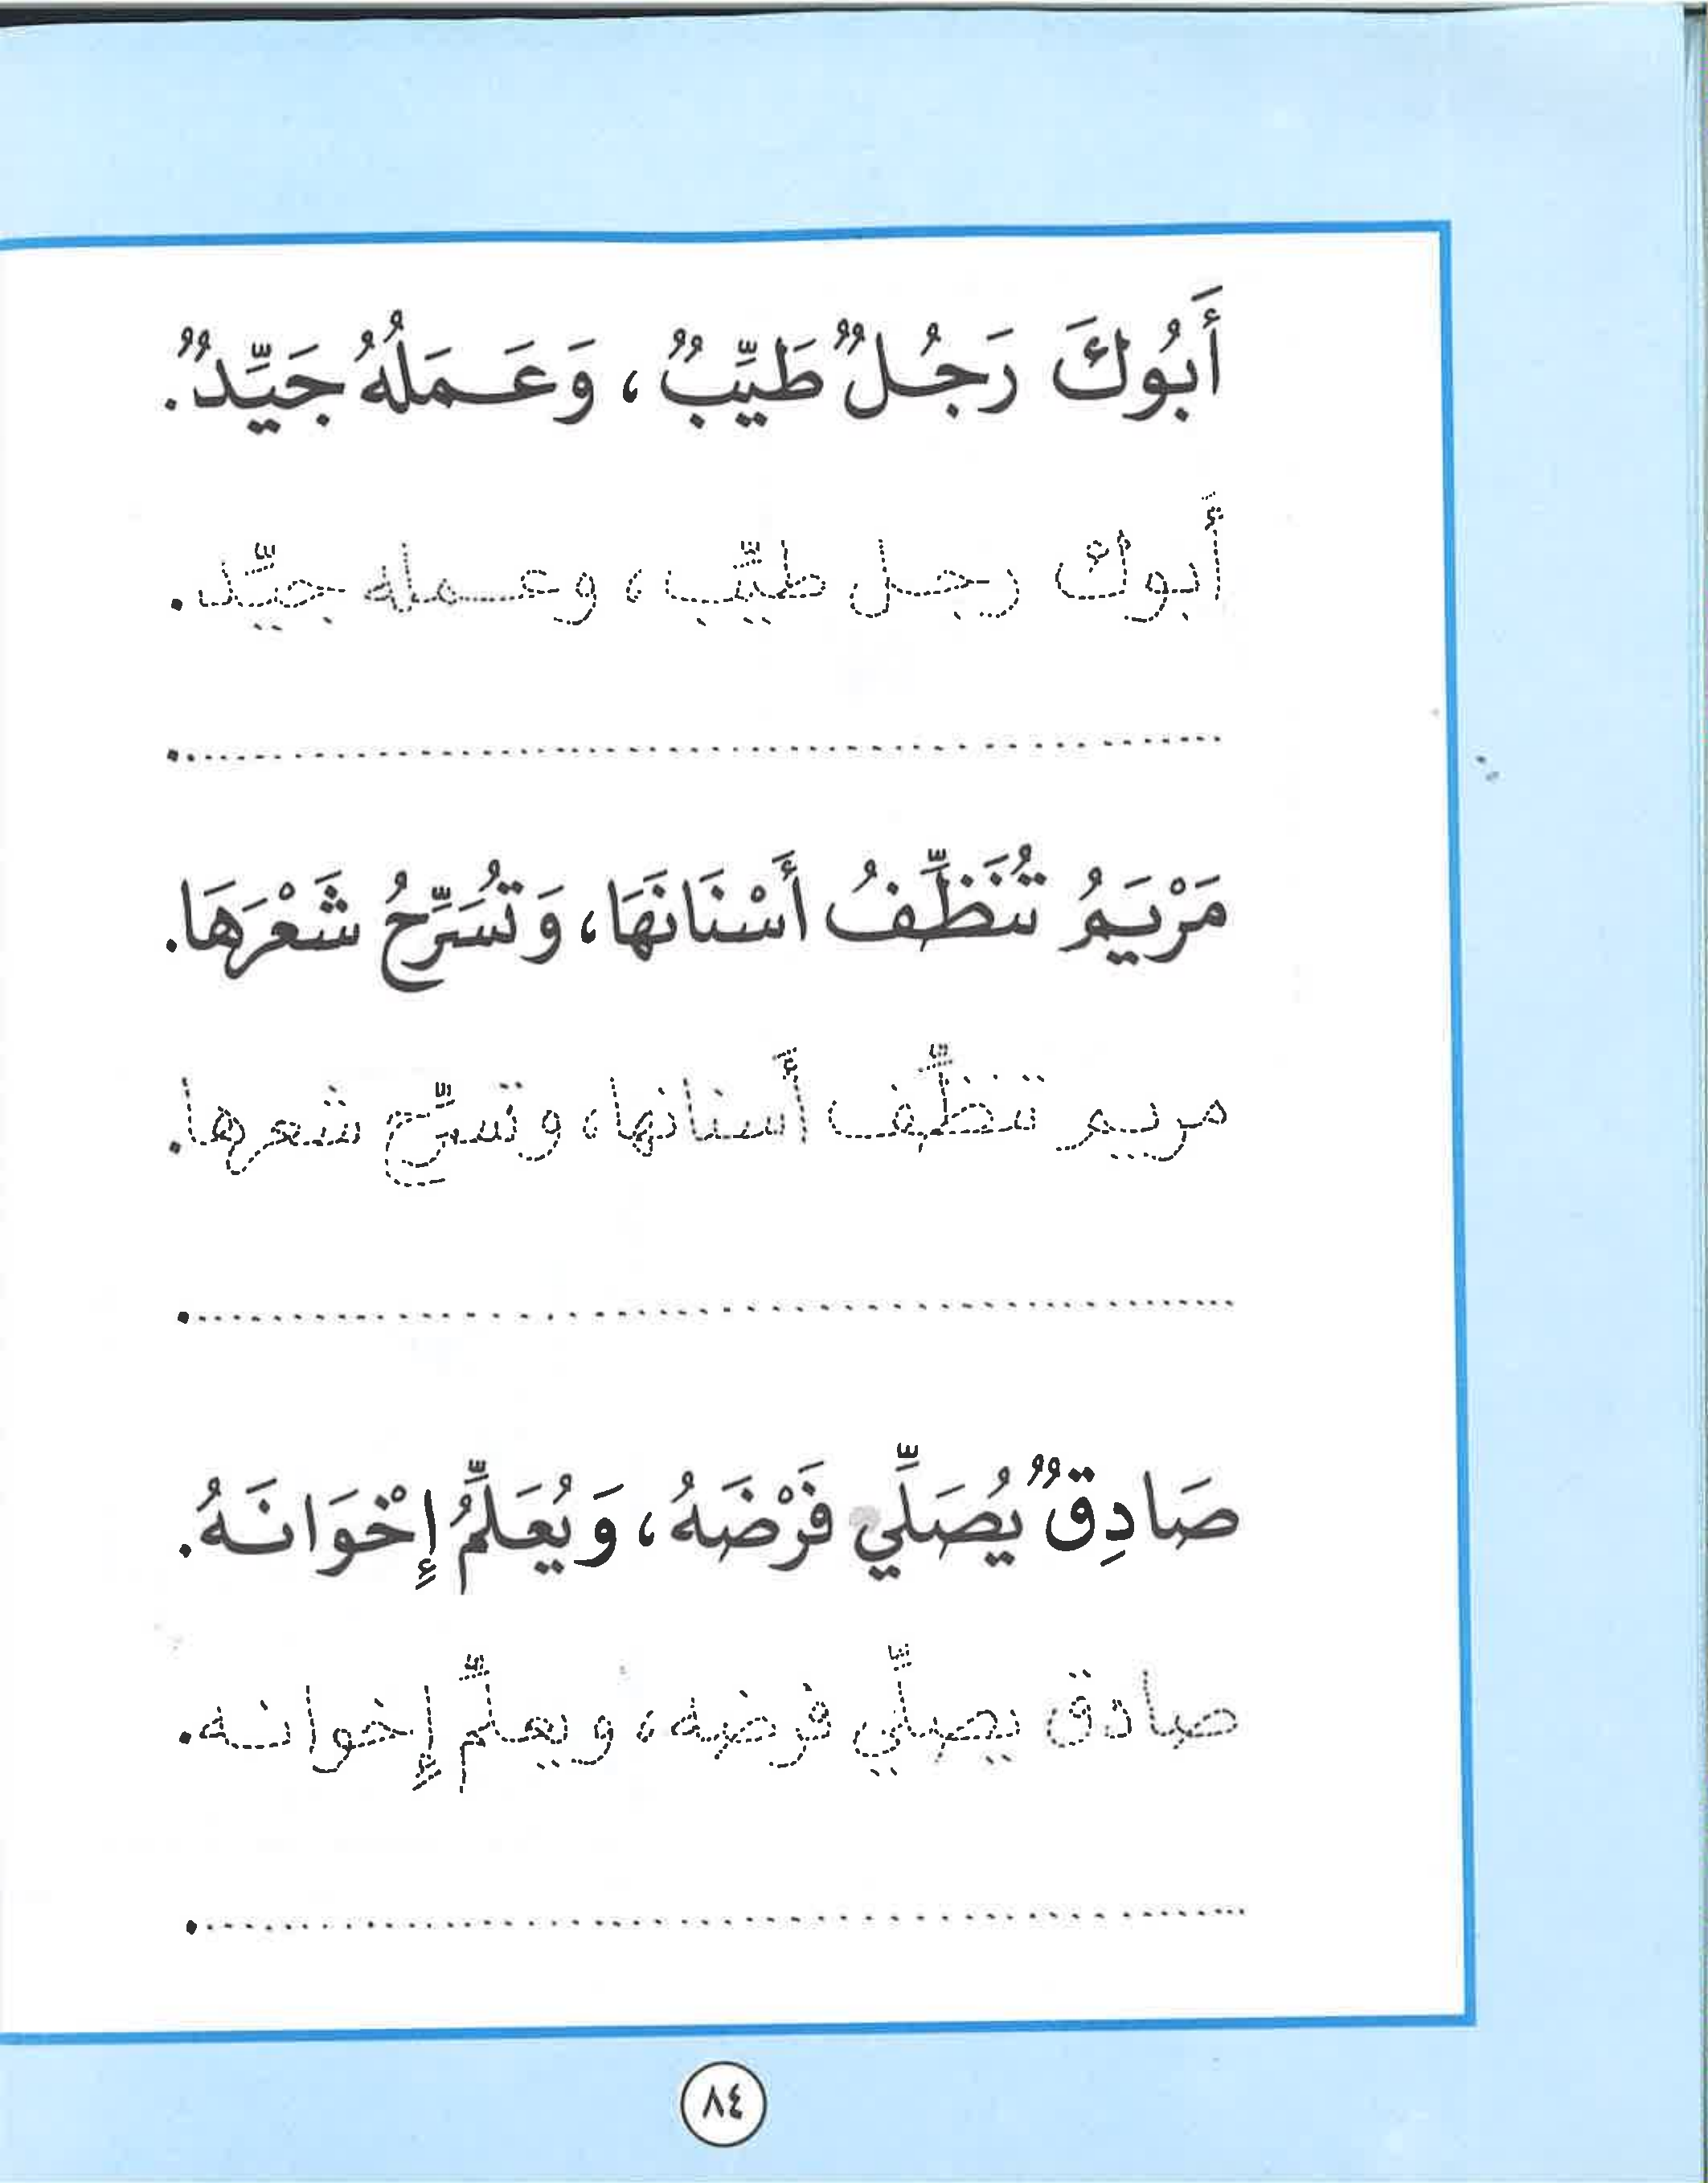 أَبُوكَ رَجُلٌ طَيِّبٌ، وَعَمَلُهُ جَيِّدٌ.
أبوك رجل طيّب، وعمله جيّد.
مَرْيَمُ تُنَظِّفُ أَسْنَانَهَا، وَتُسَرِّحُ شَعْرَهَا.
مريم تنظّف أسنانها، وتسرّح شعرها.
صَادِقٌ يُصَلِّي فَرْضَهُ، وَيُعَلِّمُ إِخْوَانَهُ.
صادق يصلّي فرضه، ويعلّم إخوانه.
٨٤